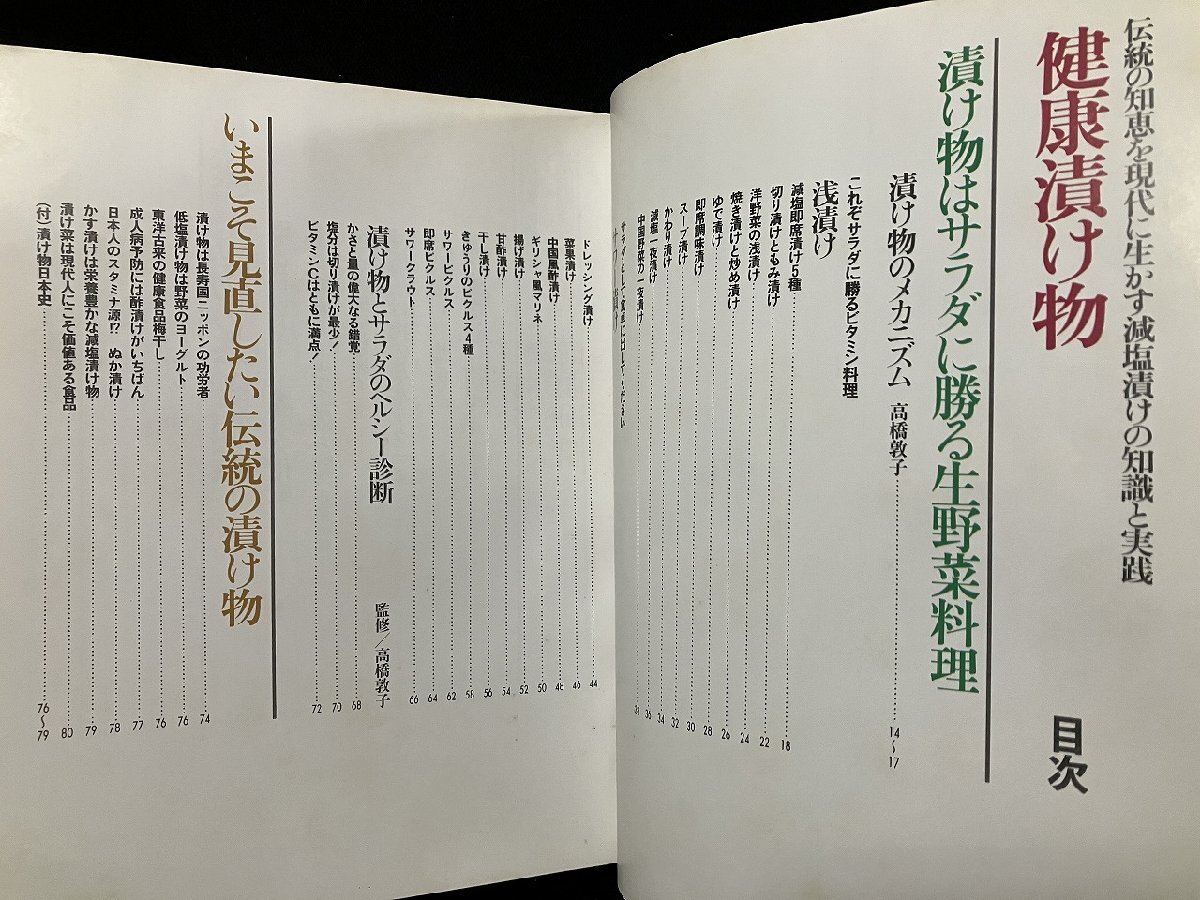 伝統の知恵を現代に生かす減塩漬けの知識と実践
健康漬け物
目次
漬け物はサラダに勝る生野菜料理
漬け物のメカニズム 高橋敦子 14〜17
これぞサラダに勝るビタミン料理
浅漬け
減塩即席漬け5種 18
切り漬けともみ漬け 22
洋野菜の浅漬け 24
焼き漬けと炒め漬け 26
ゆで漬け 28
即席調味漬け 30
スープ漬け 32
かわり漬け 34
減塩一夜漬け 36
中国野菜の一夜漬け
ドレッシング漬け 44
菜果漬け 46
中国風酢漬け 48
ギリシャ風マリネ 50
揚げ漬け 52
甘酢漬け 54
干し漬け 56
きゅうりのピクルス4種 58
サワーピクルス 62
即席ピクルス 64
サワークラウト 66
漬け物とサラダのヘルシー診断 監修/高橋敦子
かさと量の偉大なる錯覚 68
塩分は切り漬けが最少! 70
ビタミンCはともに満点! 72
いまこそ見直したい伝統の漬け物
漬け物は長寿国ニッポンの功労者 74
低塩漬け物は野菜のヨーグルト 76
東洋古来の健康食品梅干し 76
成人病予防には酢漬けがいちばん 77
日本人のスタミナ源!? ぬか漬け 78
かす漬けは栄養豊かな減塩漬け物 79
漬け菜は現代人にこそ価値ある食品 80
(付)漬け物日本史 76〜79